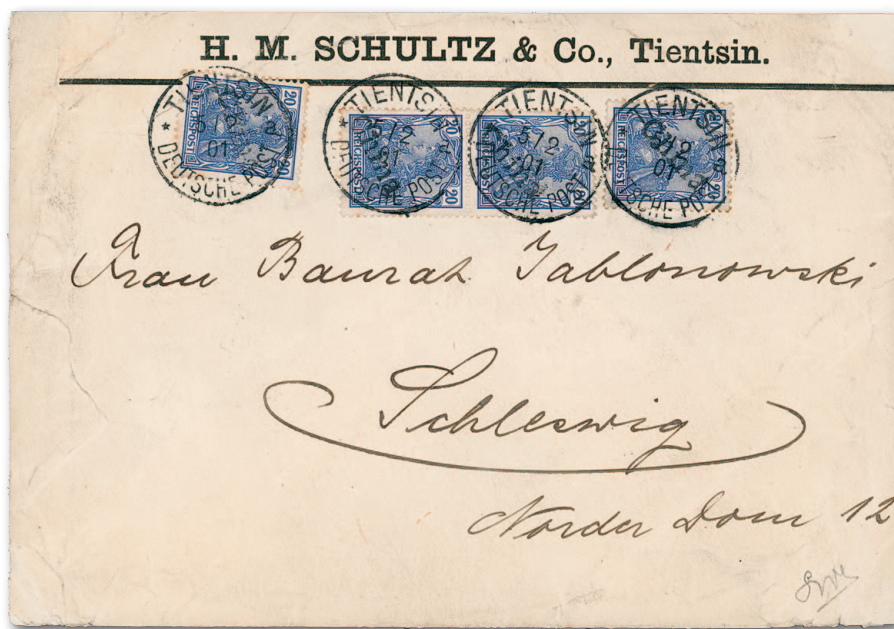 H. M. SCHULTZ & Co., Tientsin.
* TIENTSIN a
5/2
01
DEUTSCHE POST
20
REICHSPOST
20
* TIENTSIN a
5/2
01
DEUTSCHE POST
20
REICHSPOST
20
TIENTSIN a
5/2
01
DEUTSCHE POST
TIENTSIN a
5/2
01
DEUTSCHE POST
REICHSPOST
20
Frau Baurat Jablonowski
Schleswig
Norder Dom 12